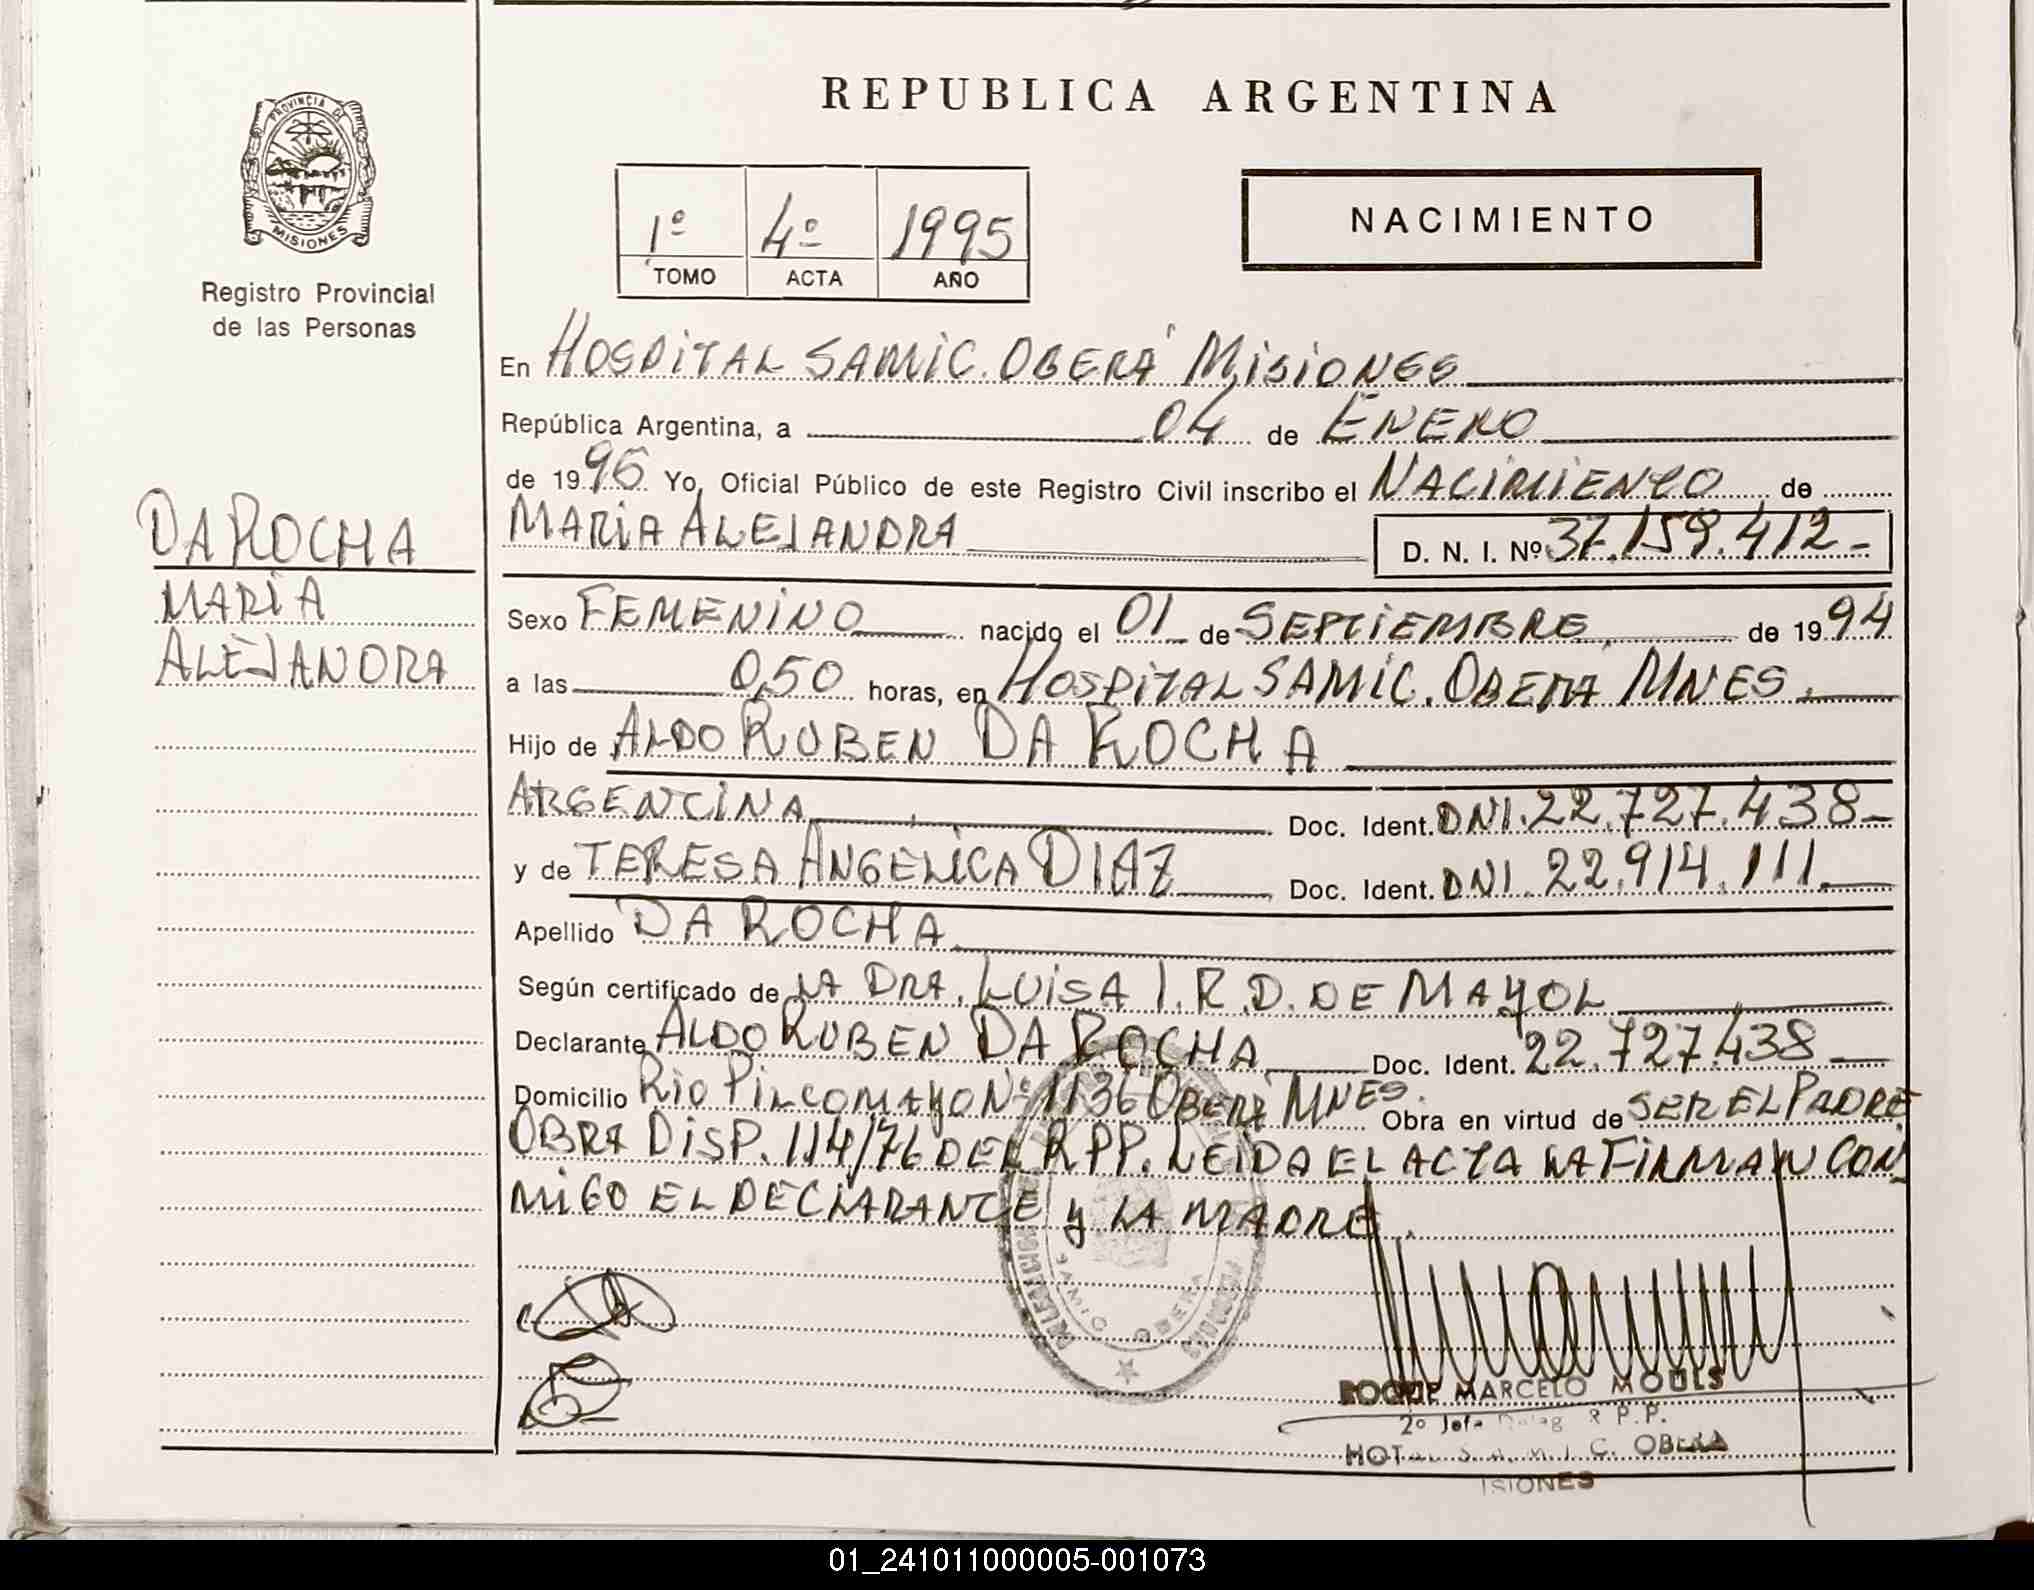 REPUBLICA ARGENTINA
PROVINCIA DE
MISIONES
Registro Provincial
de las Personas
1º 4º 1995
TOMO ACTA AÑO
NACIMIENTO
En HOSPITAL SAMIC. OBERÁ MISIONES
República Argentina, a 04 de ENERO
de 1996 Yo, Oficial Público de este Registro Civil inscribo el NACIMIENTO de
MARIA ALEJANDRA D. N. I. Nº 37.159.412-
DA ROCHA
MARIA
ALEJANDRA
Sexo FEMENINO nacido el 01 de SEPTIEMBRE de 1994
a las 0,50 horas, en HOSPITAL SAMIC. OBERA MNES.
Hijo de ALDO RUBEN DA ROCHA
ARGENTINA Doc. Ident. DNI. 22.727.438-
y de TERESA ANGELICA DIAZ Doc. Ident. DNI. 22.914.111
Apellido DA ROCHA
Según certificado de LA DRA. LUISA I. R. D. DE MAYOL
Declarante ALDO RUBEN DA ROCHA Doc. Ident. 22.727.438
Domicilio RIO PILCOMAYO Nº 1136 OBERA MNES. Obra en virtud de SER EL PADRE
OBRA DISP. 114/76 DEL RPP. LEIDA EL ACTA LA FIRMAN CON
MIGO EL DECLARANTE y LA MADRE.
OBERA
ROQUE MARCELO MOULS
2º Jefe Deleg R P.P.
S. A. M. I. C. OBERA
01_241011000005-001073